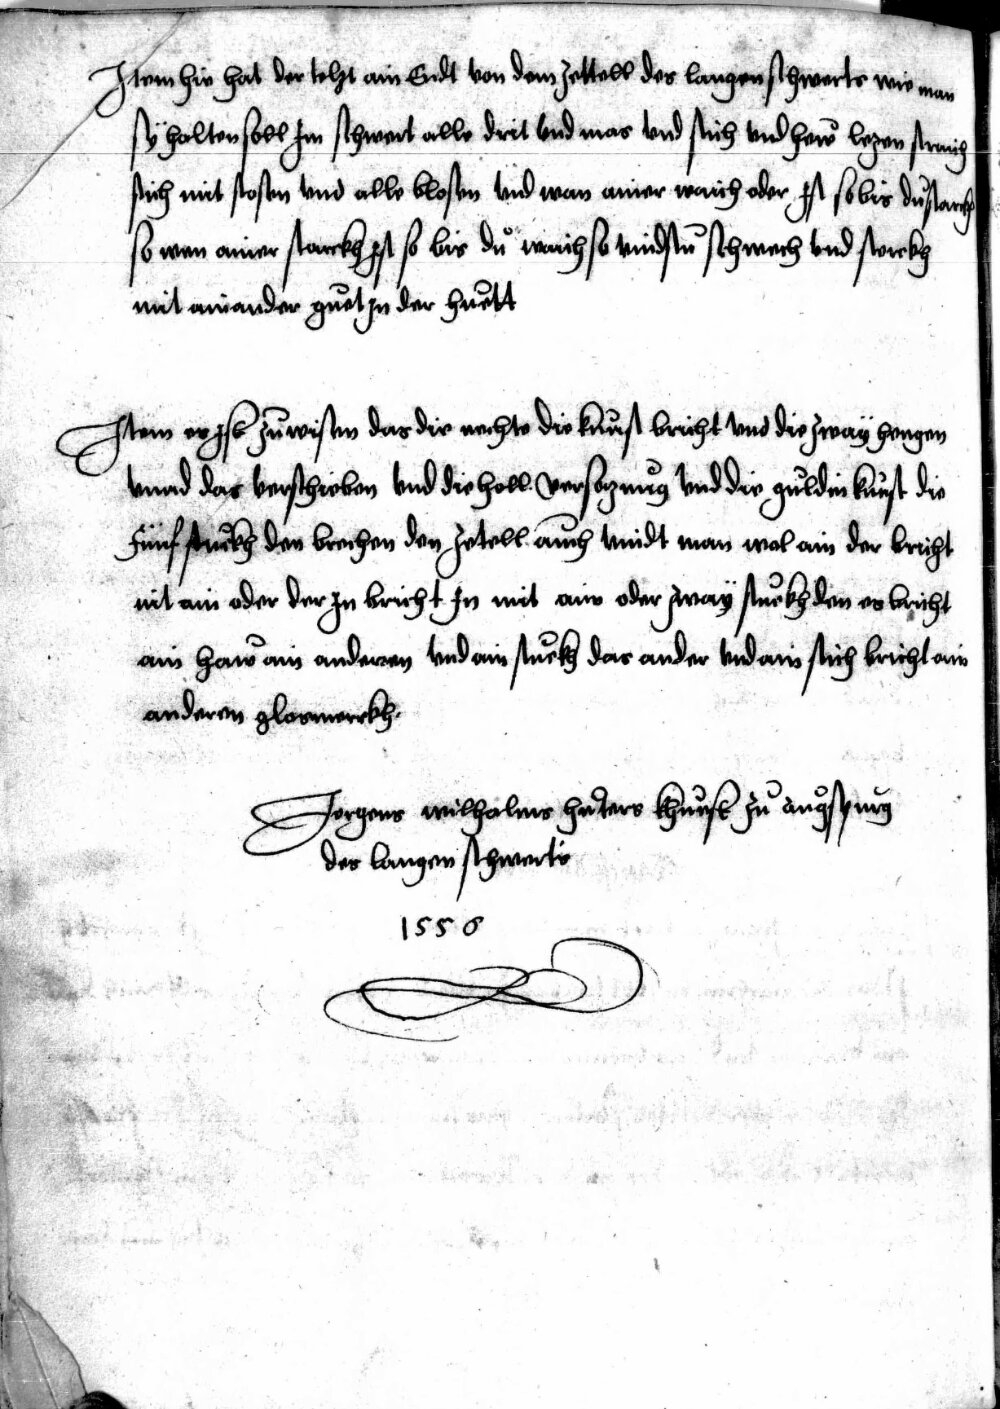 Item hie hat der telzt ain Endt von dem zettell des langen schwerts wie man
sÿ halten soll Im schwert alle drit vnd mas vnd stich vnd hew lezen straich
stich mit stosen vnd alle blosen vnd wan ainer waich oder Ist so bis du starckh
so wen ainer starckh Ist so bis dů waich so vindstu schwech vnd sterckh
mit ainander guet In der huett
Item es Ist zu wisen das die rechte die kunst bricht vnd die zwaÿ hengen
vnnd das verschieben vnd die holl versazung vnd die guldin kunst die
Fünf stuckh den brechen den zetell auch vindt man wol ain der bricht
nit ain oder der In bricht In mit ain oder zwaÿ stuckh den es bricht
ain haw ain anderen vnd ain stuckh das ander vnd ain stich bricht ain
anderen glosmerckh.
Jorgens wilhalms huters khunst zu augspurg
des langen schwerts
1556